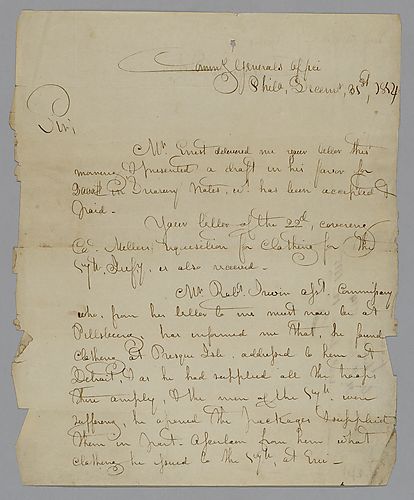 Commy Generals office
Phila, Decemr, 31st, 1814
Sir,
Mr. Ernst delivered me your letter this
morning, I presented a draft in his favor for
in Treasury Notes, wh has been accepted &
paid.-
Your letter of the 22d, covering
Ca. Nellers requisition for Clothing for the
Infy, is also received.-
Mr. Robt. Irwin asst. Commissary
who, from his letter to me must now be at
Pittsburg, has informed me that, he found
clothing at Presque Isle, addressed to him at
Detroit, & as he had supplied all the troops
there amply, & the men of the were
suffering, he opened the packages & supplied
them in part. Ascertain from him what
clothing he issued to the at Erie